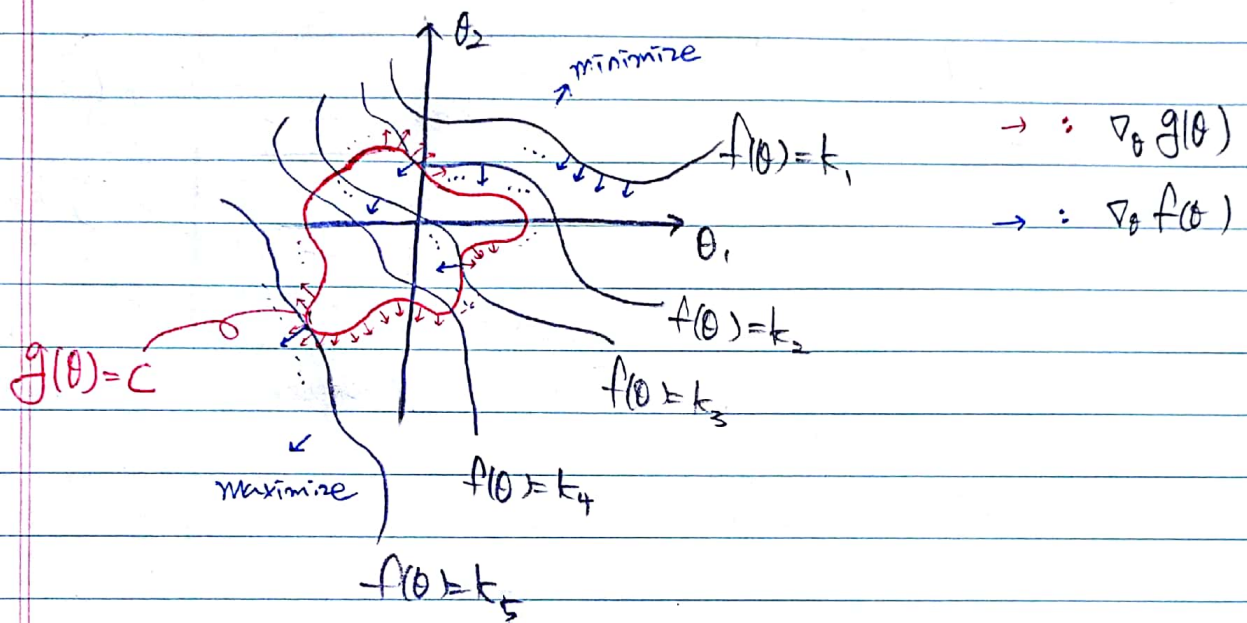 θ₂
minimize
f(θ)=k₁
→ : ∇_θ g(θ)
→ : ∇_θ f(θ)
θ₁
f(θ)=k₂
g(θ)=c
f(θ)=k₃
maximize
f(θ)=k₄
f(θ)=k₅